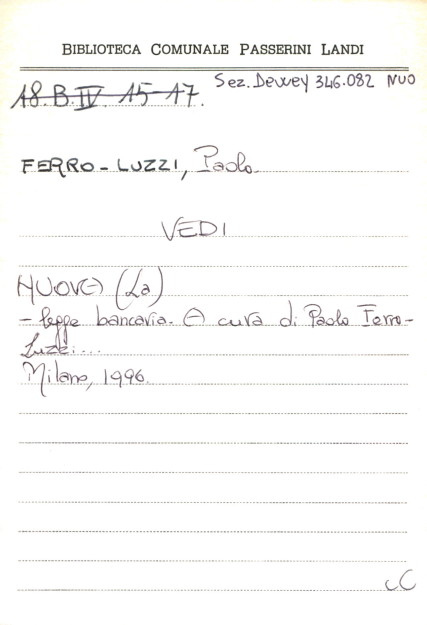 BIBLIOTECA COMUNALE PASSERINI LANDI
18.B.IV. 15-17.
Sez. Dewey 346.082 NUO
FERRO-LUZZI, Paolo.
VEDI
NUOVA (La)
- legge bancaria. A cura di Paolo Ferro-
Luzzi...
Milano, 1996.
CC